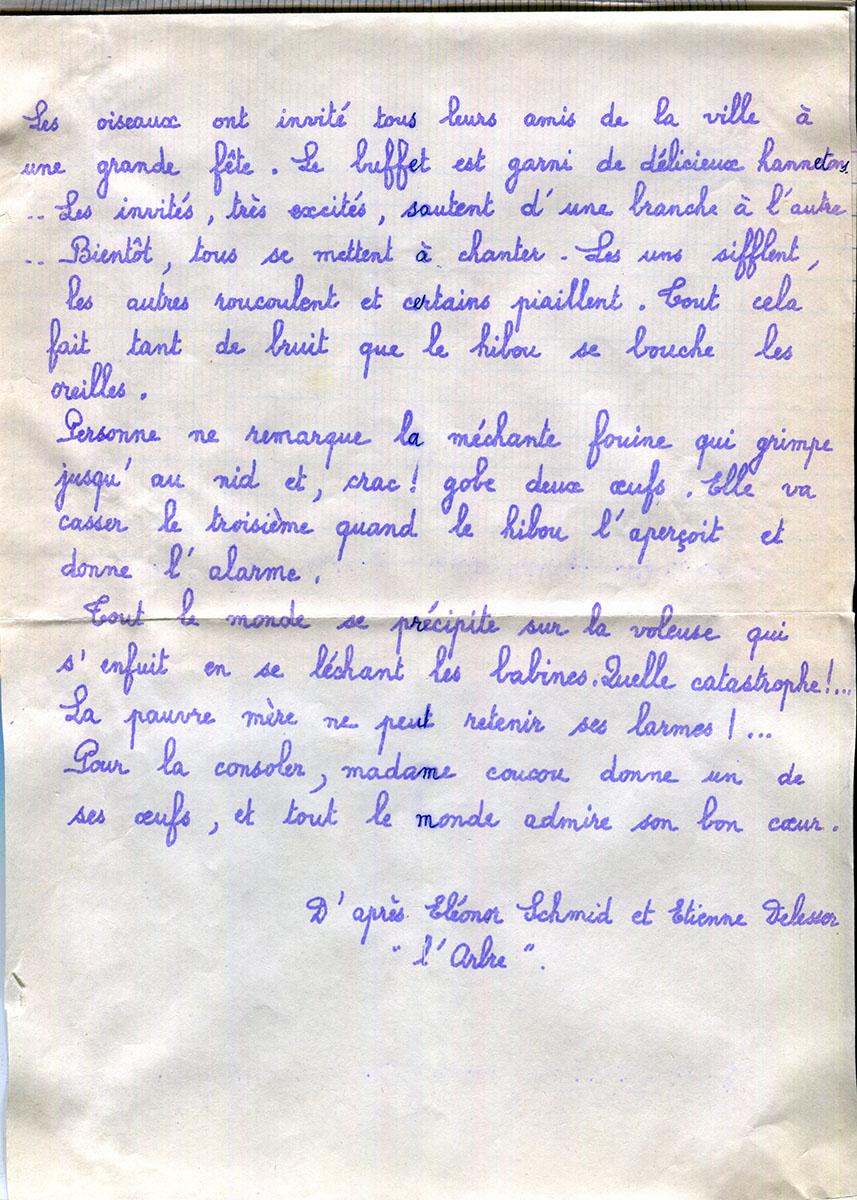 Les oiseaux ont invité tous leurs amis de la ville à
une grande fête. Le buffet est garni de délicieux hannetons.
.. Les invités, très excités, sautent d'une branche à l'autre
.. Bientôt, tous se mettent à chanter. Les uns sifflent,
les autres roucoulent et certains piaillent. Tout cela
fait tant de bruit que le hibou se bouche les
oreilles.
Personne ne remarque la méchante fouine qui grimpe
jusqu'au nid et, crac! gobe deux œufs. Elle va
casser le troisième quand le hibou l'aperçoit et
donne l'alarme.
Tout le monde se précipite sur la voleuse qui
s'enfuit en se léchant les babines. Quelle catastrophe!...
La pauvre mère ne peut retenir ses larmes!...
Pour la consoler, madame coucou donne un de
ses œufs, et tout le monde admire son bon cœur.
D'après Eléonor Schmid et Etienne Delesser
"l'Arbre".